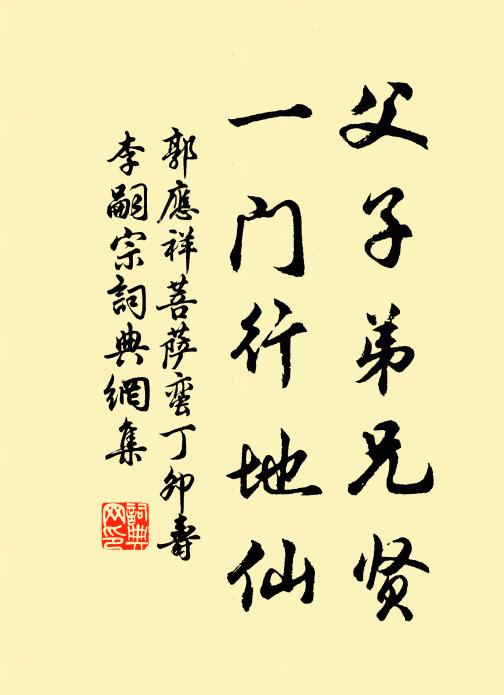 父子弟兄贤
一门行地仙
郭應祥菩薩蛮丁卯壽
李嗣宗詞典網集
詞典
网印